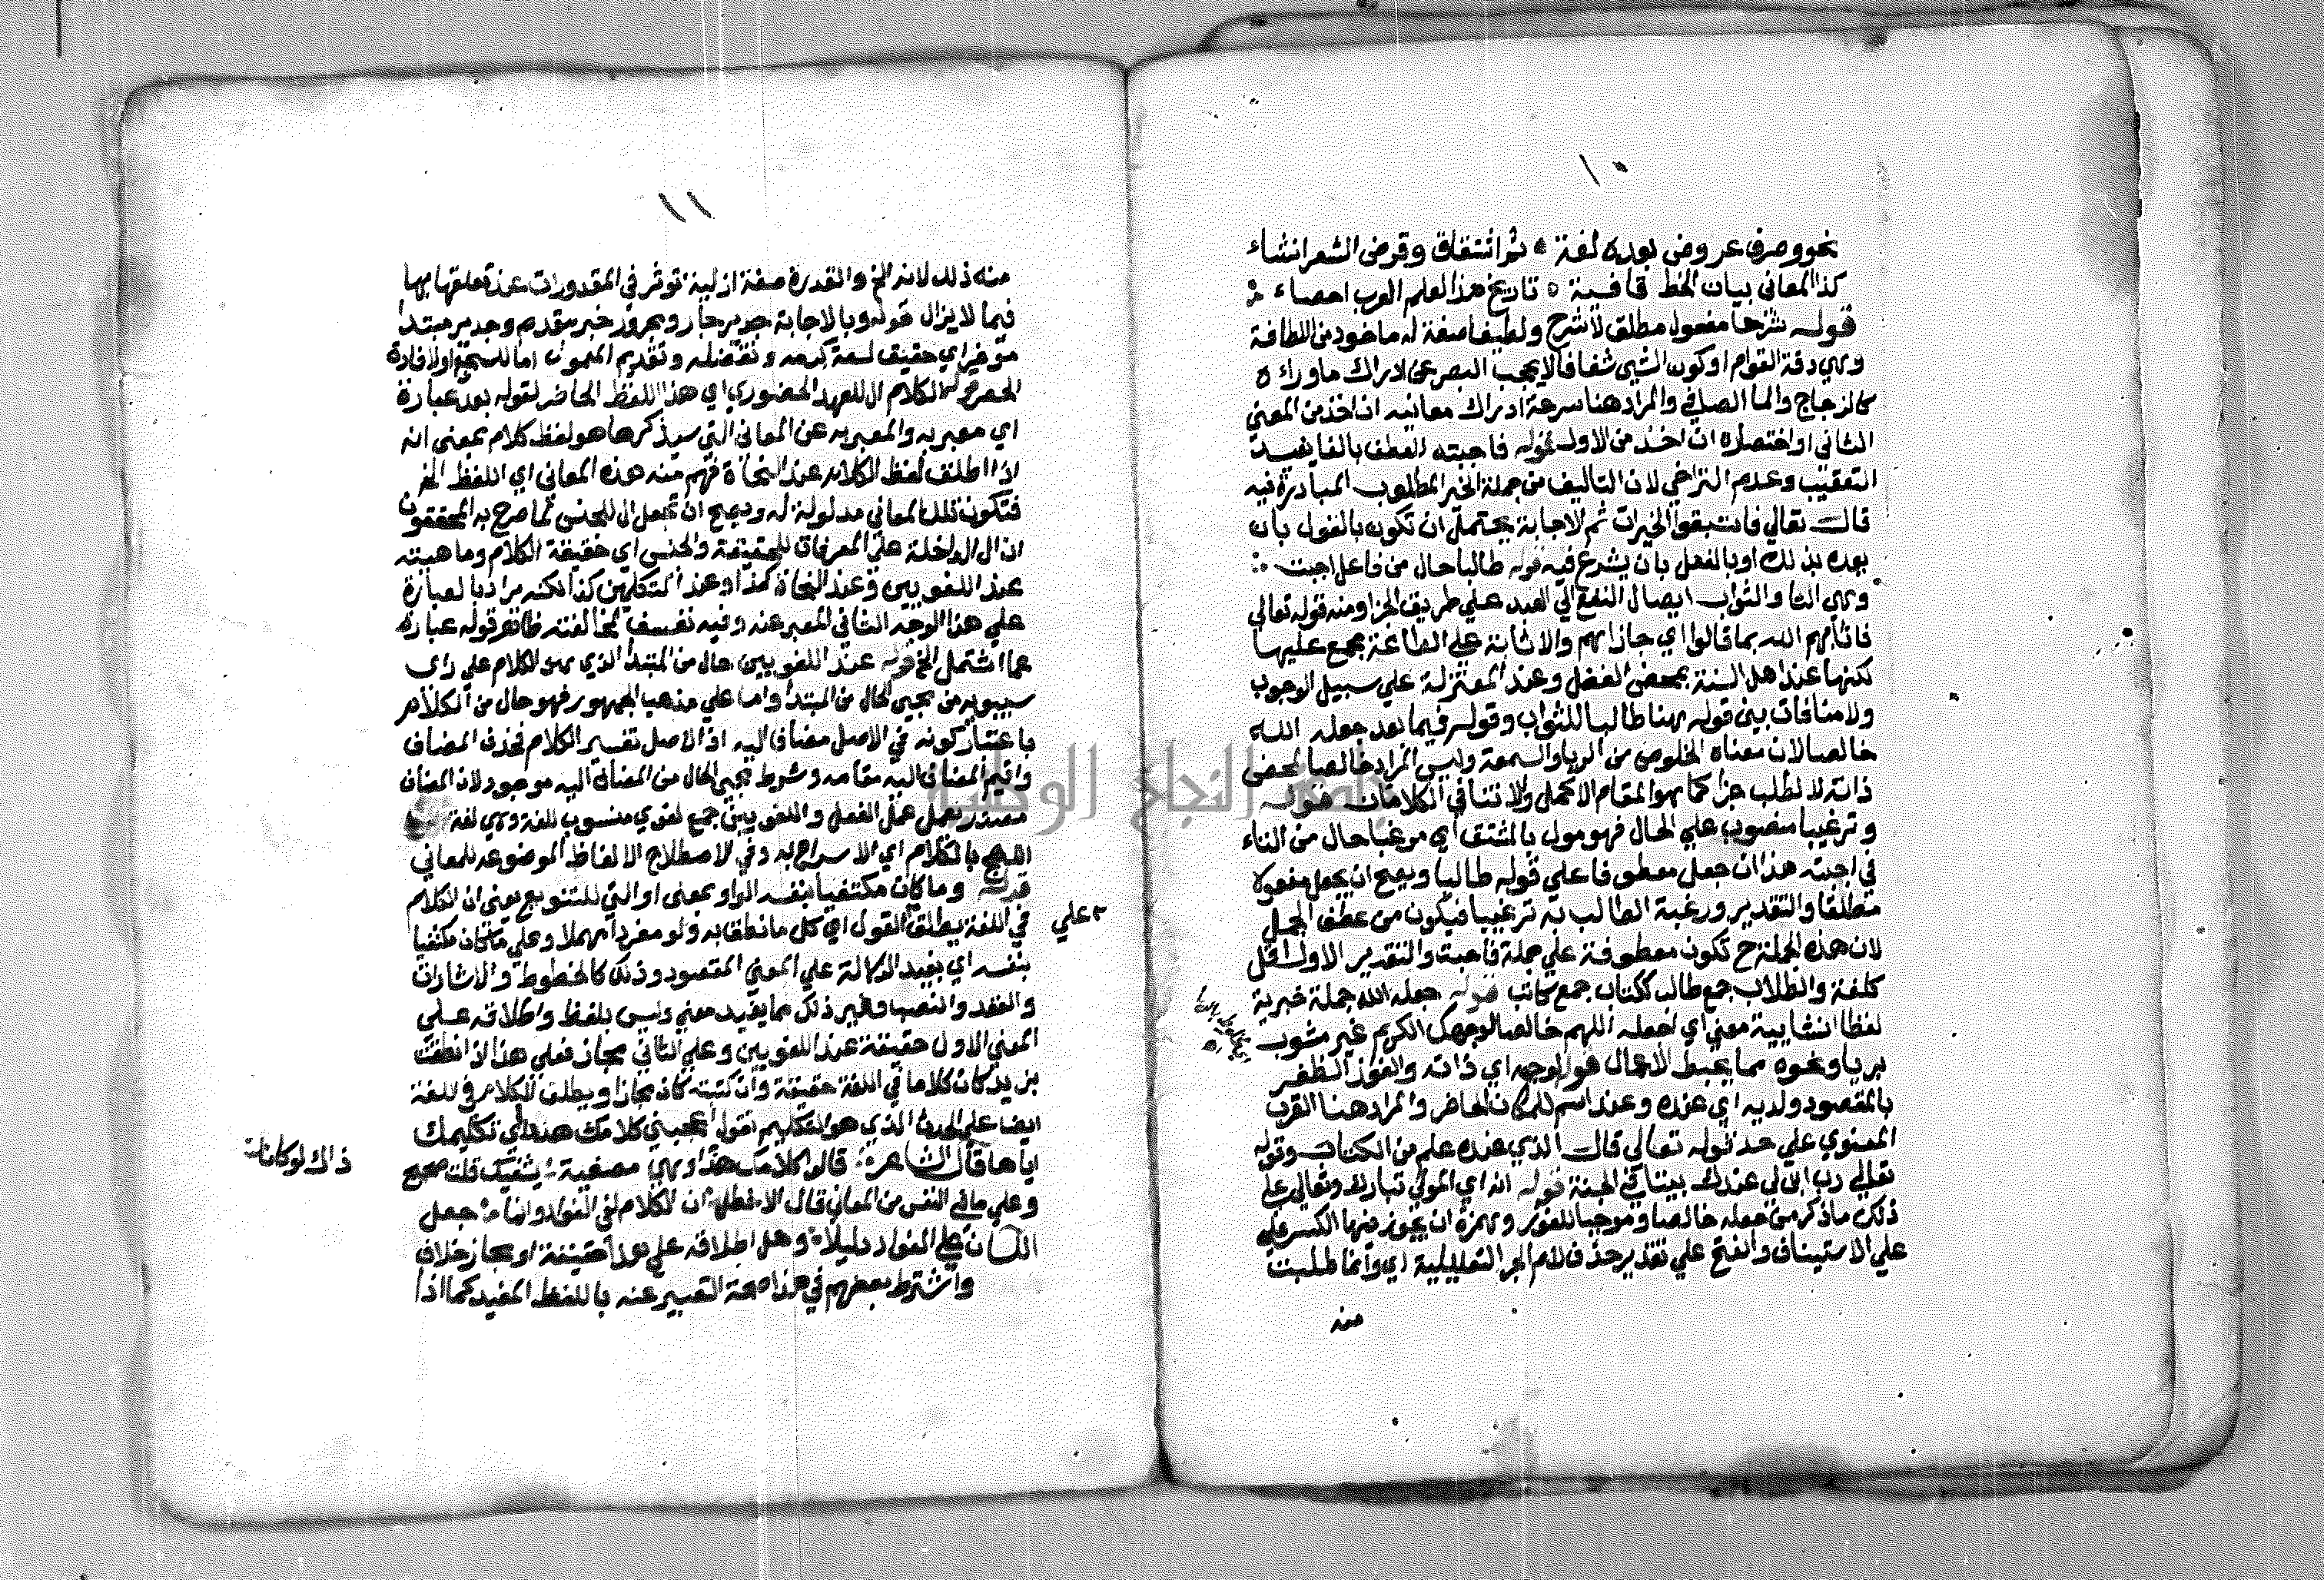 ١٠
نحو وصرف عروض بعده لغة ثم اشتقاق وقرض الشعر انشاء
كذا المعاني بيان الخط قافية تاريخ هذا العلم العرب احصاء
قوله شرحا مفعول مطلق لاشرح ولطيفا صفة له ماخوذ من اللطافة
وهي دقة القوام او كون الشي شفافا لا يحجب البصر عن ادراك ما وراءه
كالزجاج والما الصافي والمراد هنا سرعة ادراك معانيه ان اخذ من المعني
الثاني او اختصاره ان اخذ من الاول قوله فاجبته العطف بالفا يفيد
التعقيب وعدم التراخي لان التاليف من جملة الخير المطلوب المبادرة فيه
قال تعالي فاستبقوا الخيرات ثم الاجابة يحتمل ان تكون بالقول بان
يعده بذلك او بالفعل بان يشرع فيه قوله طالبا حال من فاعل اجبت
وهي التا والثواب ايصال النفع الي العبد علي طريق الجزا ومنه قوله تعالي
فاثابهم الله بما قالوا اي جازاهم والاثابة علي الطاعة مجمع عليها
لكنها عند اهل السنة بمحض الفضل وعند المعتزلة علي سبيل الوجوب
ولا منافات بين قوله هنا طالبا للثواب وقوله فيما بعد جعله الله
خالصا لان معناه الخلوص من الريا والسمعة وليس المراد خالصا لمحض
ذاته لا لطلب جزا كما هو المقام الاكمل ولا تنافي الكلامان قوله
وترغيبا منصوب علي الحال فهو مول بالمشتق اي مرغبا حال من التاء
في اجبته هذا ان جعل معطوفا علي قوله طالبا ويصح ان يجعل مفعولا
مطلقا والتقدير ورغبة الطالب به ترغيبا فيكون من عطف الجمل
لان هذه الجملة ح تكون معطوفة علي جملة فاجبت والتقدير الاول اقل
كلفة والطلاب جمع طالب ككتاب جمع كاتب قوله جعله الله جملة خبرية
لفظا انشايية معني اي اجعله اللهم خالصا لوجهك الكريم غير مشوب
بريا ونحوه مما يحبط الاعمال قوله لوجهه اي ذاته والفوز الظفر
بالمقصود ولديه اي عنده وعند اسم للمكان الحاضر والمراد هنا القرب
المعنوي علي حد قوله تعالي قال الذي عنده علم من الكتاب وقوله
تعالي رب ابن لي عندك بيتا في الجنة قوله انه اي المولي تبارك وتعالي علي
ذلك ما ذكر من جعله خالصا وموجبا للفوز وهمزة ان يجوز فيها الكسر علي
علي الاستيناف والفتح علي تقدير حذف لام الجر التعليلية اي وانما طلبت
منه
١١
منه ذلك لانه الخ والقدرة صفة ازلية توثر في المقدورات عند تعلقها بها
فيما لا يزال قوله وبالاجابة جدير جار ومجرور خبر مقدم وجدير مبتدا
موخر اي حقيق لسعة كرمه وتفضله وتقديم المعمول اما للسجع او لافادة
الحصر قوله الكلام ال للعهد الحضوري اي هذا اللفظ الحاضر لقوله بعد عبارة
اي معبر به والمعبر به عن المعاني التي سيذكرها هو لفظ كلام بمعني انه
اذا اطلق لفظ الكلام عند النحاة فهم منه هذه المعاني اي اللفظ الخ
فتكون تلك المعاني مدلولة له ويصح ان تجعل ال للجنس لما صرح به المحققون
ان ال الداخلة علي المعرفات للحقيقة والجنس اي حقيقة الكلام وماهيته
عند اللغويين وعند النحاة كذا وعند المتكلمين كذا لكنه مراد بالعبارة
علي هذا الوجه الثاني المعبر عنه وفيه تعسف لمخالفته ظاهر قوله عبارة
عما اشتمل الخ قوله عند اللغويين حال من المبتدا الذي هو الكلام علي راي
سيبويه من مجيي الحال من المبتدا واما علي مذهب الجمهور فهو حال من الكلام
باعتبار كونه في الاصل مضافا اليه اذ الاصل تفسير الكلام فحذف المضاف
واقيم المضاف اليه مقامه وشرط مجيي الحال من المضاف اليه موجود لان المضاف
مصدر يعمل عمل الفعل واللغويين جمع لغوي منسوب للغة وهي لغة
اللهج بالكلام اي الاسراع به وفي الاصطلاح الالفاظ الموضوعه للمعاني
قوله وما كان مكتفيا بنفسه الواو بمعني او التي للتنويع يعني ان الكلام
في اللغة يطلق القول اي كل ما نطق به ولو مفردا مهملا وعلي ما كان مكتفيا
٢ علي
بنفسه اي يفيد الدلالة علي المعني المقصود وذلك كالخطوط والاشارات
والعقد والنصب وغير ذلك مما يفيد معني وليس بلفظ واطلاقه علي
المعني الاول حقيقة عند اللغويين وعلي الثاني مجاز فعلي هذا اذا نطقت
بزيد كان كلاما في اللغة حقيقة وان كتبته كان مجازا ويطلق الكلام في اللغة
ايضا علي الحدث الذي هو التكليم تقول اعجبني كلامك هندا اي تكليمك
اياها قال الشاعر قالوا كلامك هندا وهي مصغية يشفيك قلت صحيح
ذاك لو كانا
وعلي ما في النفس من المعاني قال الاخطل ان الكلام لفي الفواد وانما جعل
اللسان علي الفواد دليلا وهل اطلاقه علي هذا حقيقة او مجاز خلاف
واشترط بعضهم في هذا صحة التعبير عنه باللفظ المفيد كما اذا
جامعة النجاح الوطنية